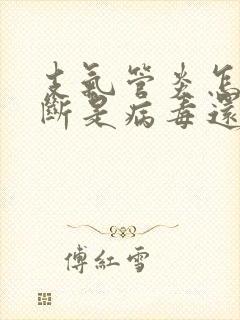 支氣管炎怎
斷是病毒還
傅紅雪